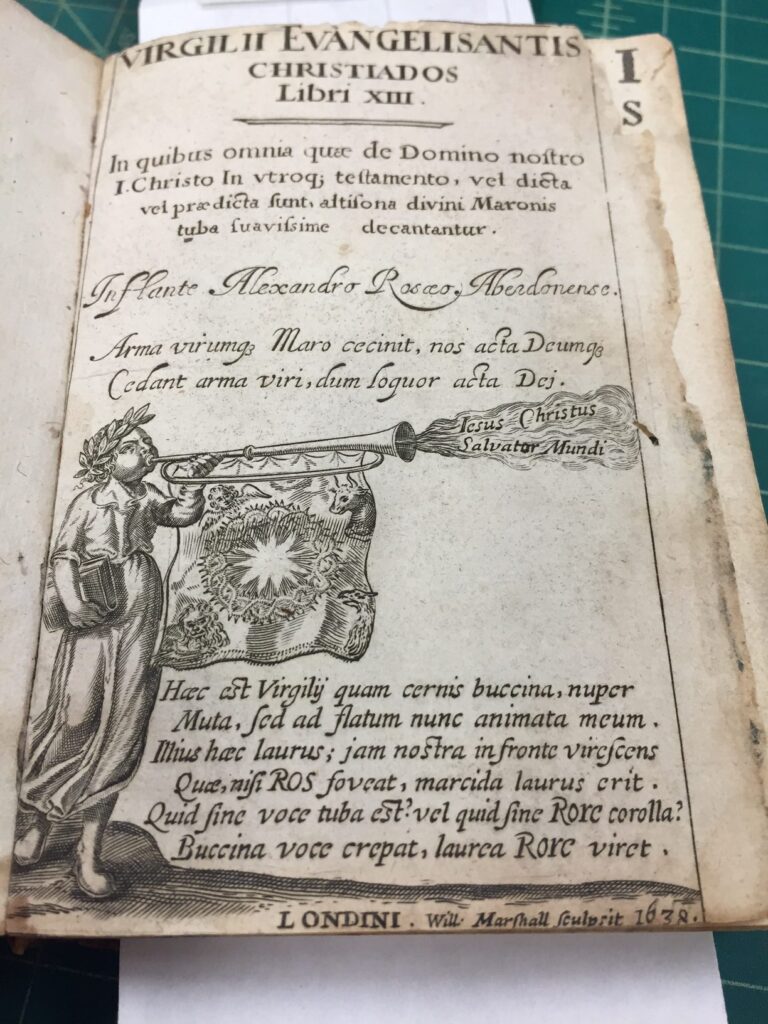 VIRGILII EVANGELISANTIS
CHRISTIADOS
Libri XIII.
In quibus omnia quæ de Domino nostro
I. Christo In vtroq; testamento, vel dicta
vel prædicta sunt, altisona divini Maronis
tuba suavissime decantantur.
Inflante Alexandro Rosæo, Aberdonense.
Arma virumq; Maro cecinit, nos acta Deumq;
Cedant arma viri, dum loquor acta Dej.
Iesus Christus
Salvator Mundi
Hæc est Virgilij quam cernis buccina, nuper
Muta, sed ad flatum nunc animata meum.
Illius hæc laurus; jam nostra in fronte virescens
Quæ, nisi ROS foveat, marcida laurus erit.
Quid sine voce tuba est? vel quid sine Rore corolla?
Buccina voce crepat, laurea Rore viret.
LONDINI. Will: Marshall sculpsit 1638.
I
S